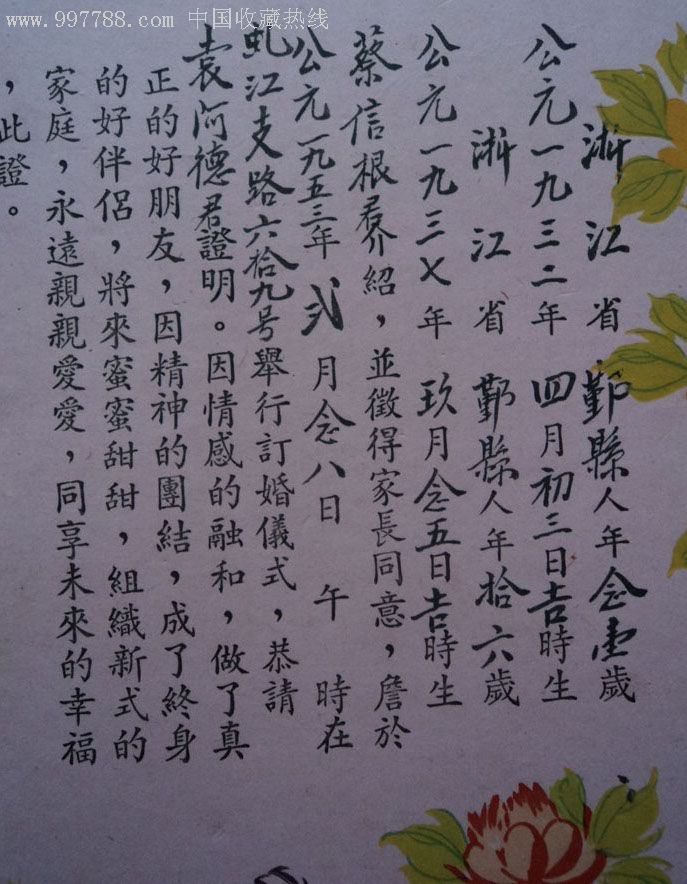 www.997788.com 中国收藏热线
浙江省鄞縣人年念壹歲
公元一九三二年四月初三日吉時生
浙江省鄞縣人年拾六歲
公元一九三七年玖月念五日吉時生
蔡信根君介紹，並徵得家長同意，詹於
公元一九五三年弍月念八日 午 時在
虬江支路六拾九号舉行訂婚儀式，恭請
袁阿德君證明。因情感的融和，做了真
正的好朋友，因精神的團結，成了終身
的好伴侶，將來蜜蜜甜甜，組織新式的
家庭，永遠親親愛愛，同享未來的幸福
，此證。